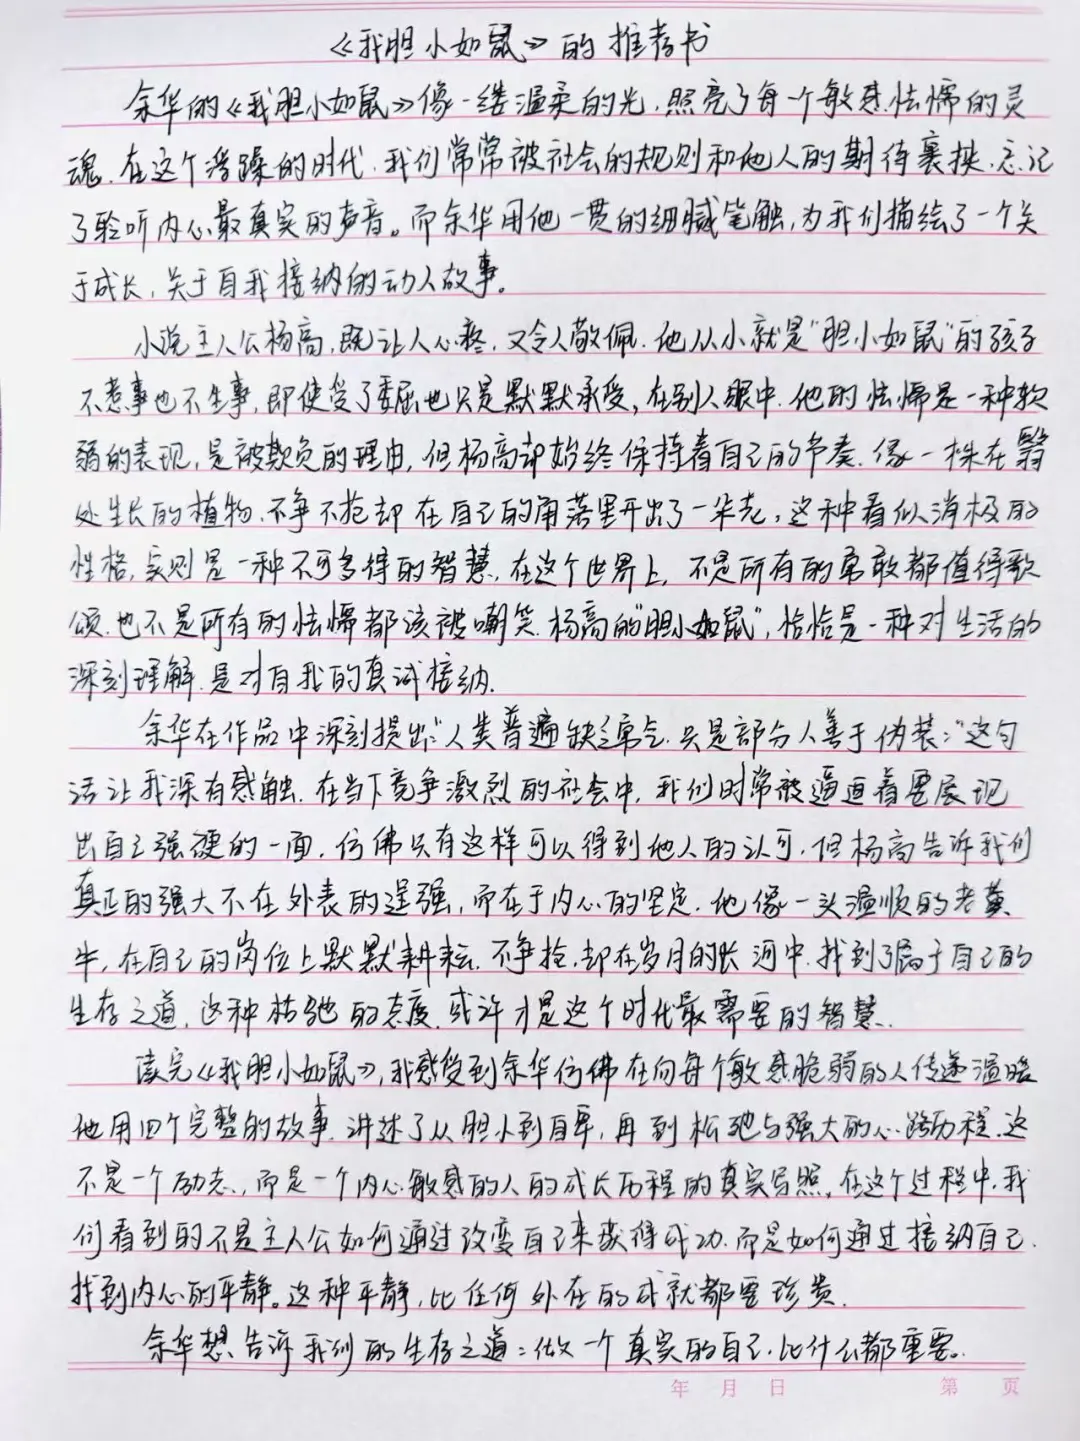 《我胆小如鼠》的推荐书
余华的《我胆小如鼠》像一缕温柔的光，照亮了每一个敏感怯懦的灵
魂.在这个浮躁的时代.我们常常被社会的规则和他人的期待裹挟.忘记
了聆听内心最真实的声音。而余华用他一贯的细腻笔触,为我们描绘了一个关
于成长,关于自我接纳的动人故事。
小说主人公杨高,既让人心疼,又令人敬佩.他从小就是"胆小如鼠"的孩子
不惹事也不生事,即使受了委屈也只是默默承受,在别人眼中.他的怯懦是一种软
弱的表现,是被欺负的理由,但杨高却始终保持着自己的节奏.像一株在
处生长的植物.不争不抢却在自己的角落里开出了一朵花,这种看似消极的
性格,实则是一种不可多得的智慧.在这个世界上,不是所有的勇敢都值得歌
颂.也不是所有的怯懦都该被嘲笑.杨高的"胆小如鼠",恰恰是一种对生活的
深刻理解.是对自我的真诚接纳.
余华在作品中深刻提出:"人类普遍缺乏勇气.只是部分人善于伪装:"这句
话让我深有感触.在当下竞争激烈的社会中.我们时常被逼迫着要展现
出自己强硬的一面.仿佛只有这样可以得到他人的认可.但杨高告诉我们
真正的强大不在外表的逞强,而在于内心的坚定.他像一头温顺的老黄
牛,在自己的岗位上默默耕耘.不争抢.却在岁月的长河中.找到了属于自己的
生存之道,这种松弛的态度.或许才是这个时代最需要的智慧.
读完《我胆小如鼠》,我感受到余华仿佛在向每个敏感脆弱的人传递温暖
他用四个完整的故事.讲述了从胆小到自卑,再到松弛与强大的心路历程.这
不是一个励志,而是一个内心敏感的人的成长历程的真实写照。在这个过程中,我
们看到的不是主人公如何通过改变自己来获得成功.而是如何通过接纳自己.
找到内心的平静。这种平静,比任何外在的成就都要珍贵.
余华想告诉我们的生存之道:做一个真实的自己.比什么都重要。
年 月 日 第 页